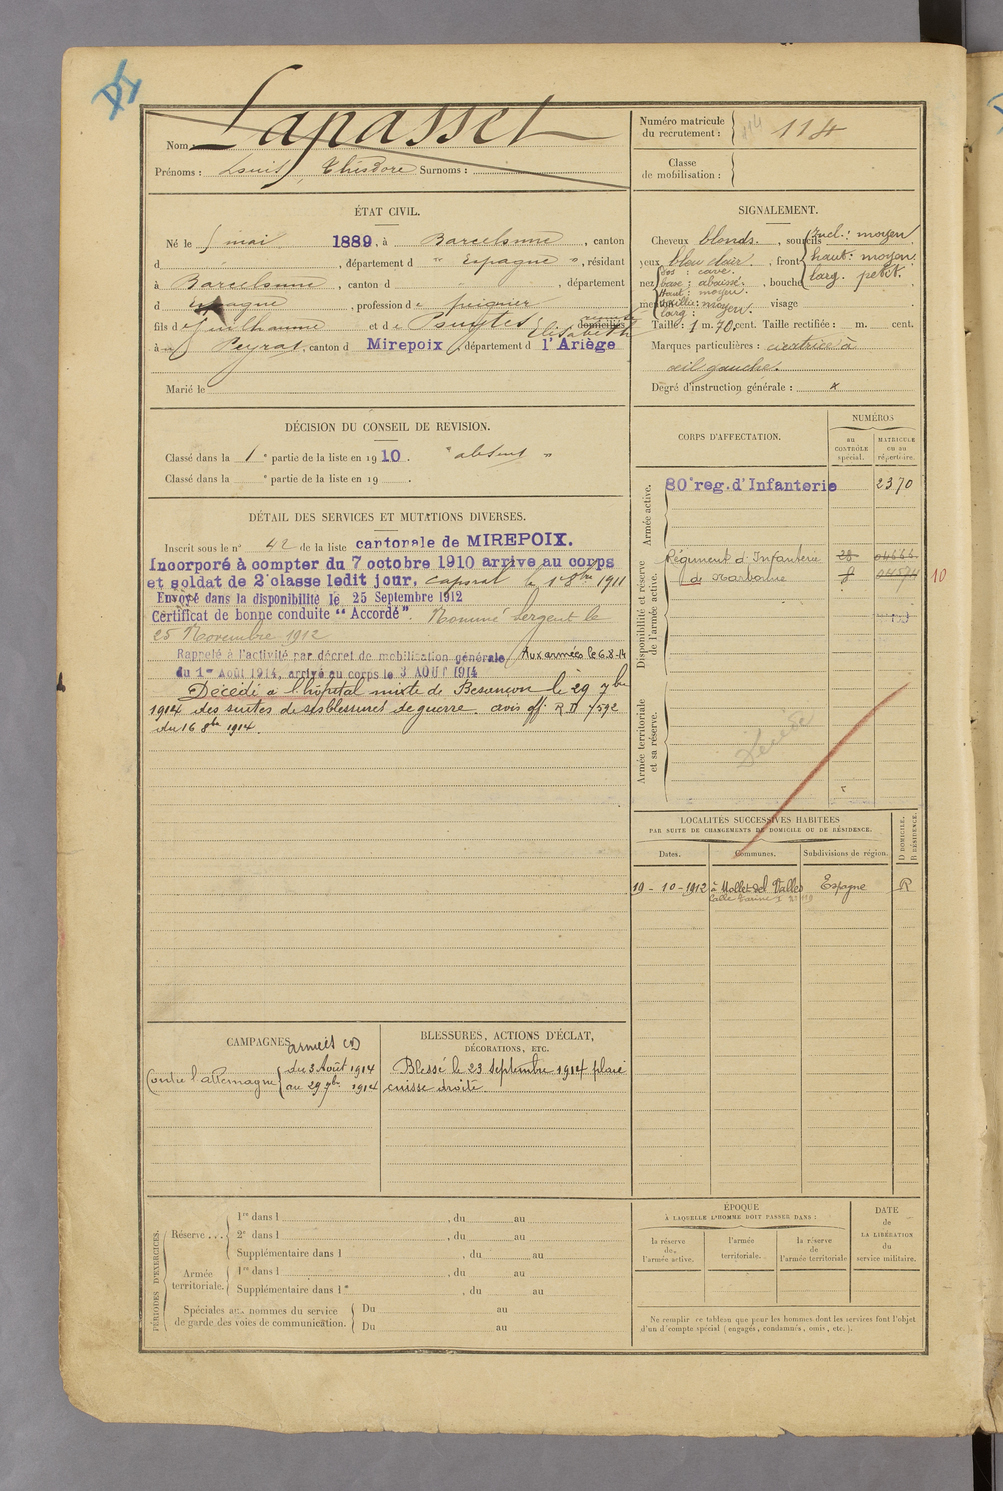 Nom Lapasset
Prénoms : Louis Théodore Surnoms :
Numéro matricule du recrutement : 114
Classe de mobilisation :
ÉTAT CIVIL.
Né le 5 mai 1889, à Barcelonne, canton
d , département d " Espagne ", résidant
à Barcelonne, canton d " , département
d Espagne, profession de peignier
fils de Guilhaume et de Pouytes Elisabeth domiciliés
à Peyrat, canton d Mirepoix, département d l'Ariège
Marié le
SIGNALEMENT.
Cheveux blonds. , sourcils
yeux bleu clair. , front { Incl. : moyen. haut : moyen. larg. petit.
nez { Dos : cave. base : abaissé. Haut : moyen. saillie : moyen. larg : moyen. , bouche
menton visage
Taille : 1 m. 70 cent. Taille rectifiée : m. cent.
Marques particulières : cicatrice à
œil gauche.
Degré d'instruction générale : x
DÉCISION DU CONSEIL DE REVISION.
Classé dans la 1e partie de la liste en 1910. "absent"
Classé dans la e partie de la liste en 19 .
DÉTAIL DES SERVICES ET MUTATIONS DIVERSES.
Inscrit sous le n° 42 de la liste cantonale de MIREPOIX.
Incorporé à compter du 7 octobre 1910 arrivé au corps
et soldat de 2e classe ledit jour, caporal le 1er 8bre 1911
Envoyé dans la disponibilité le 25 Septembre 1912
Certificat de bonne conduite "Accordé". Nommé Sergent le
25 Novembre 1912
Rappelé à l'activité par décret de mobilisation générale Aux armées le 6.8.14
du 1er Août 1914, arrivé au corps le 3 AOUT 1914
Décédé à l'hôpital mixte de Besançon le 29 7bre
1914 des suites de ses blessures de guerre. avis off. R.D 7592
du 16 8bre 1914.
CORPS D'AFFECTATION.
NUMÉROS
au CONTRÔLE spécial.
MATRICULE ou au répertoire.
Armée active.
80e reg. d'Infanterie 2370
Disponibilité et réserve de l'armée active.
Régiment d'Infanterie 28
de Narbonne 8
10
Armée territoriale et sa réserve.
Décédé
LOCALITÉS SUCCESSIVES HABITÉES
PAR SUITE DE CHANGEMENTS DE DOMICILE OU DE RÉSIDENCE.
Dates. Communes. Subdivisions de région. D DOMICILE. R RÉSIDENCE.
19 - 10 - 1912 à Mollet del Valles Espagne R
CAMPAGNES
armées (D)
Contre l'allemagne { du 3 Août 1914
au 29 7bre 1914
BLESSURES, ACTIONS D'ÉCLAT,
DÉCORATIONS, ETC.
Blessé le 23 septembre 1914 plaie
cuisse droite.
PÉRIODES D'EXERCICES.
Réserve ... 1re dans l , du au
2e dans l , du au
Supplémentaire dans l , du au
Armée territoriale. 1re dans l , du au
Supplémentaire dans l , du au
Spéciales aux hommes du service de garde des voies de communication. Du au
Du au
ÉPOQUE
À LAQUELLE L'HOMME DOIT PASSER DANS :
la réserve de l'armée active.
l'armée territoriale.
la réserve de l'armée territoriale
DATE de LA LIBÉRATION du service militaire.
Ne remplir ce tableau que pour les hommes dont les services font l'objet
d'un décompte spécial (engagés, condamnés, omis, etc.).